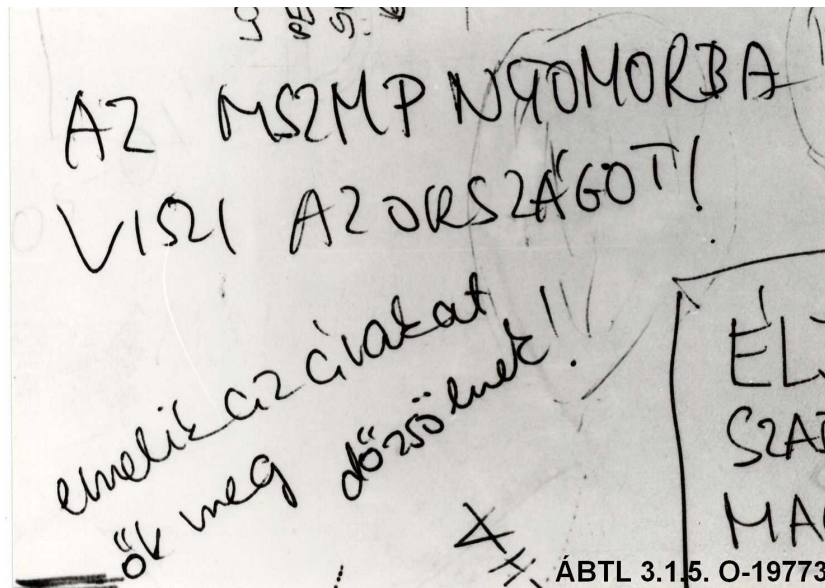 AZ MSZMP NYOMORBA
VISZI AZ ORSZÁGOT!
emelik az árakat
ők meg dőzsölnek!
ÉL
SZA
MA
ÁBTL 3.1.5. O-19773